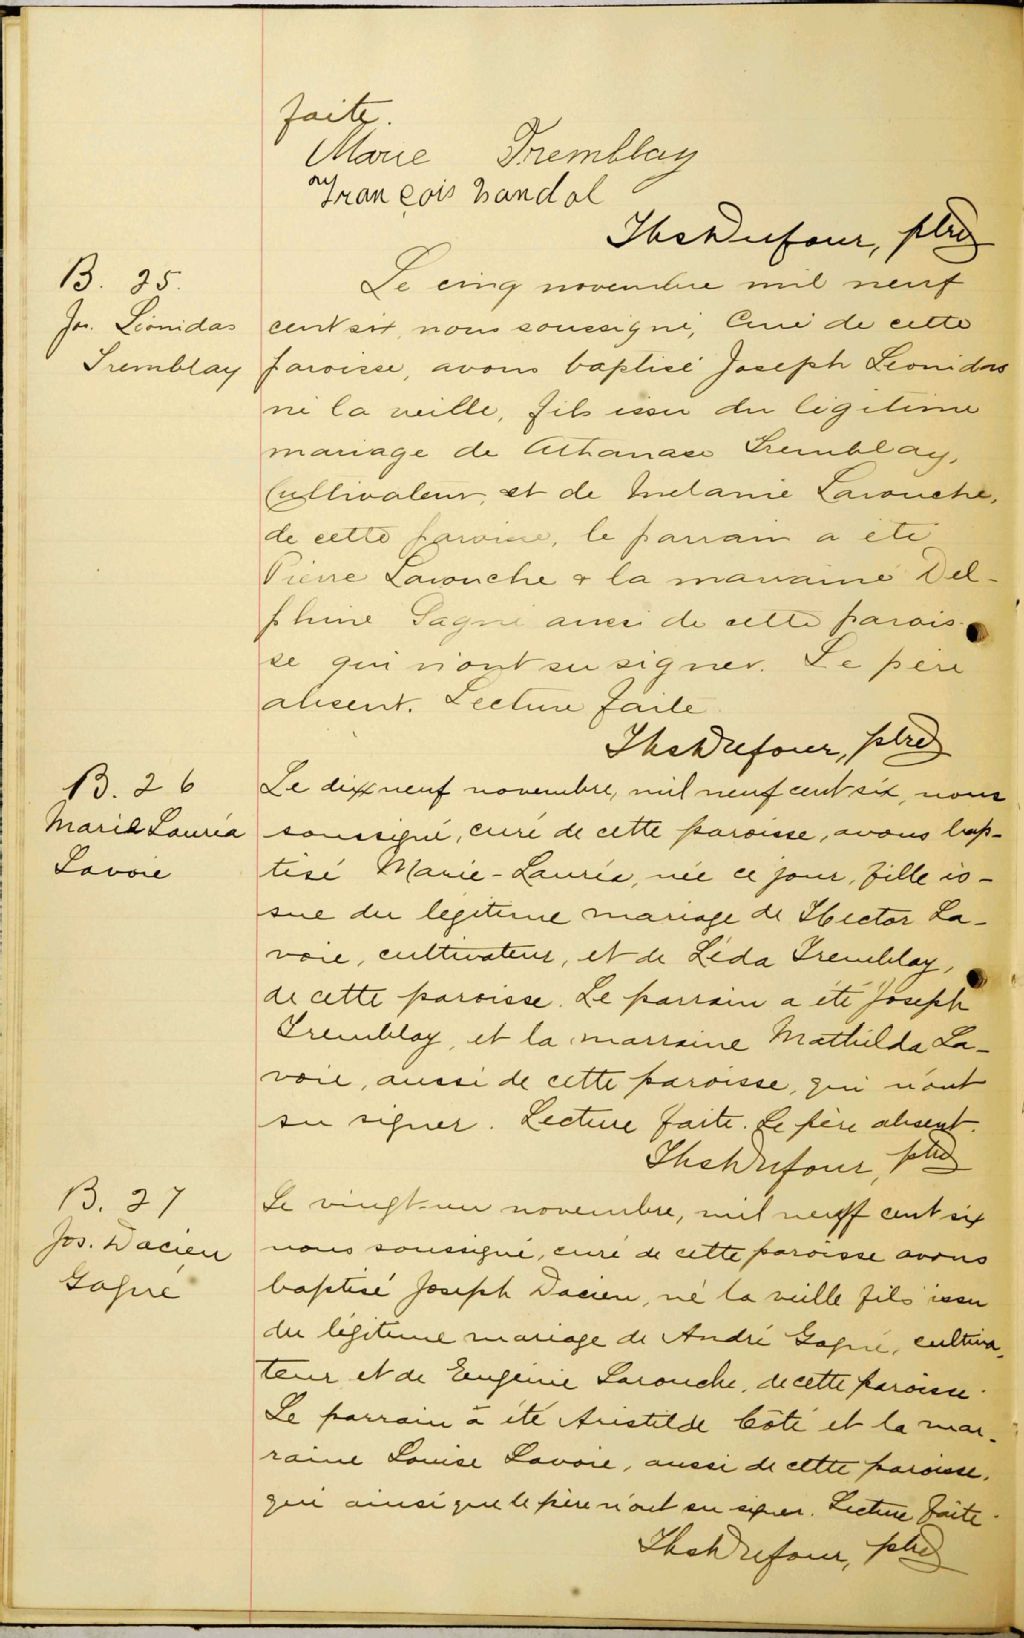 faite.
Marie Tremblay
François Vandal
Ths Dufour, ptre
B. 25.
Jos. Léonidas
Tremblay
Le cinq novembre mil neuf
cent six, nous soussigné, Curé de cette
paroisse, avons baptisé Joseph Leonidas
né la veille, fils issu du légitime
mariage de Athanase Tremblay,
Cultivateur, et de Mélanie Larouche,
de cette paroisse, le parrain a été
Pierre Larouche & la marraine Del-
phine Gagné aussi de cette parois-
se qui n'ont su signer. Le père
absent. Lecture faite
Ths Dufour, ptre
B. 26
Marie Lauréa
Lavoie
Le dix neuf novembre, mil neuf cent six, nous
soussigné, curé de cette paroisse, avons bap-
tisé Marie-Lauréa, née ce jour, fille is-
sue du légitime mariage de Hector La-
voie, cultivateur, et de Léda Tremblay,
de cette paroisse. Le parrain a été Joseph
Tremblay, et la marraine Mathilda La-
voie, aussi de cette paroisse, qui n'ont
su signer. Lecture faite. Le père absent.
Ths Dufour, ptre
B. 27
Jos. Dacien
Gagné
Le vingt-un novembre, mil neuf cent six
nous soussigné, curé de cette paroisse avons
baptisé Joseph Dacien, né la veille fils issu
du légitime mariage de André Gagné, cultiva-
teur et de Eugénie Larouche, de cette paroisse.
Le parrain a été Aristilde Côté et la mar-
raine Louise Lavoie, aussi de cette paroisse,
qui ainsi que le père n'ont su signer. Lecture faite.
Ths Dufour, ptre